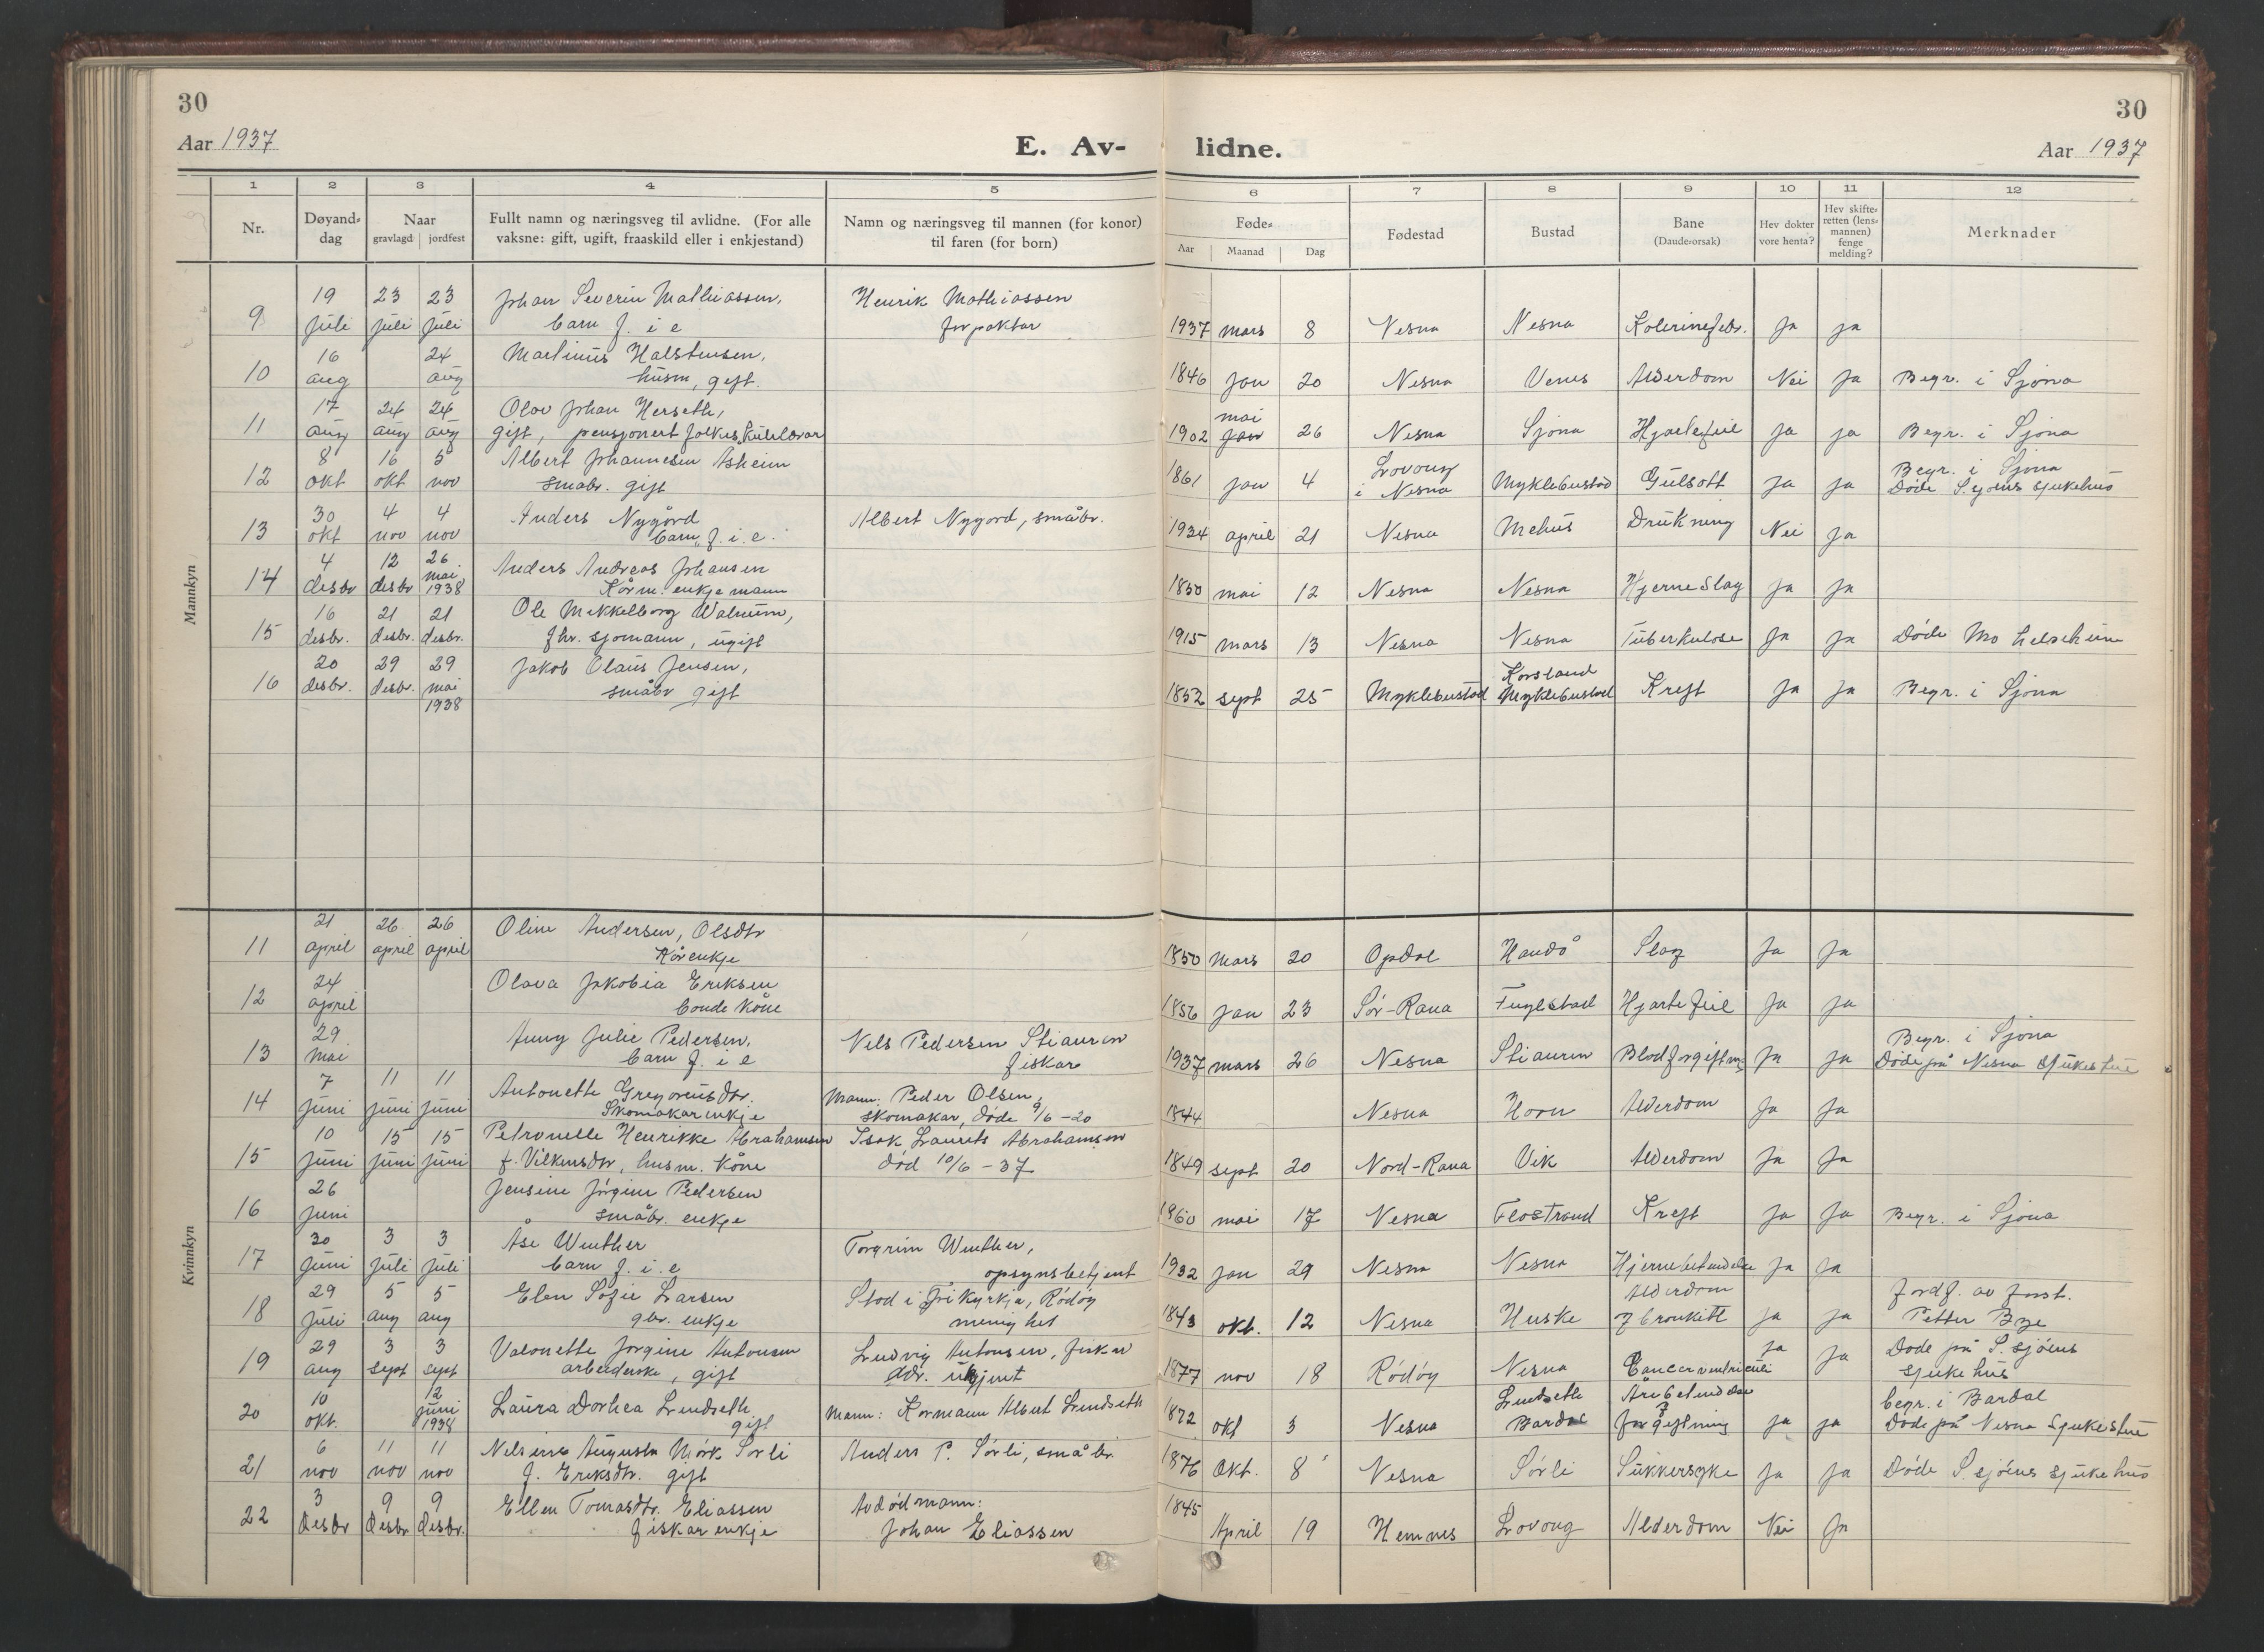 30
30
Aar 1937
E. Av-
lidne.
Aar 1937
1 2 3 4 5 6 7 8 9 10 11 12
Nr.
Døyand-
dag
Naar
gravlagd jordfest
Fullt namn og næringsveg til avlidne. (For alle
vaksne: gift, ugift, fraaskild eller i enkjestand)
Namn og næringsveg til mannen (for konor)
til faren (for born)
Føde-
Aar Maanad Dag
Fødestad
Bustad
Bane
(Daudeorsak)
Hev dokter
vore henta?
Hev skifte-
retten (lens-
mannen)
fenge
melding?
Merknader
Mannkyn
19 23 23 Johan Severin Mathiassen, Henrik Mathiassen
9 juli juli juli barn f. i e forpaktar 1937 mars 8 Nesna Nesna Kolerinefebr. Ja ja
16 24 Martinus Halstensen,
10 aug aug husm, gift. 1846 jan 20 Nesna Venes Alderdom Nei Ja Begr. i Sjona
17 24 24 Olav Johan Herseth, mai
11 aug aug aug gift, pensjonert folkeskulelærar 1902 jan 26 Nesna Sjona Hjartefeil Ja ja Begr. i Sjona
8 16 5 Albert Johannesen Åsheim Lovong Begr. i Sjona
12 okt okt nov småbr. gift 1861 jan 4 i Nesna Myklebustad Gulsott Ja ja Døde S.sjøens sjukehus
30 4 4 Anders Nygård Albert Nygord, småbr.
13 okt nov nov barn, f. i. e. 1934 april 21 Nesna Mehus Drukning Nei ja
4 12 26 Anders Andreas Johansen
14 desbr desbr mai 1938 Kårm. enkjemann 1850 mai 12 Nesna Nesna Hjerneslag Ja Ja
16 21 21 Ole Mekkelborg Walnum,
15 desbr. desbr. desbr. fhv. sjømann, ugift 1915 mars 13 Nesna Nesna Tuberkulose Ja Ja Døde Mo helseheim
20 29 29 Jakob Olaus Jensen, Korsland
16 desbr. desbr. mai småbr gift 1852 sept 25 Myklebustad Myklebustad Kreft Ja Ja Begr. i Sjona
1938
Kvinnkyn
21 26 26 Oline Andersen, Olsdtr
11 april april april Kårenkje 1850 Mars 20 Opdal Handå Slag Ja Ja
24 Olava Jakobia Eriksen
12 april bonde kone 1856 jan 23 Sør-Rana Fuglstad Hjartefeil Ja Ja
29 Anny Julie Pedersen, Nels Pedersen Stiauren Begr. i Sjona
13 mai barn f. i e fiskar 1937 mars 26 Nesna Stiauren Blodforgiftn. Ja ja Døde på Nesna Sjukestue
7 11 11 Antonette Gregoriusdtr. Mann: Peder Olsen,
14 juni juni juni Skomakarenkje skomakar, døde 9/6-20 1844 Nesna Horn Alderdom Ja Ja
10 15 15 Petronelle Henrikke Abrahamsen Isak Laurits Abrahamsen
15 juni juni juni f. Vilkensdtr, husm. kone død 10/6-37 1849 sept 20 Nord-Rana Vik Alderdom Ja Ja
26 Jensine Jørgine Pedersen
16 juni småbr. enkje 1860 mai 17 Nesna Flostrand Kreft Ja Ja Begr. i Sjona
30 3 3 Åse Winther Torgrim Winther,
17 juni juli juli barn f. i. e opsynsbetjent 1932 jan 29 Nesna Nesna Hjernebetendelse Ja Ja
29 5 5 Elen Sofie Larsen Stod i Frikyrkja, Rødøy Alderdom Jordf. av forst.
18 juli aug aug gbr. enkje menighet 1843 okt. 12 Nesna Huske og bronkitt Ja Ja Petter Bye
29 3 3 Valonette Jorgine Antonsen Ludvig Antonsen, fiskar Døde på S.sjøens
19 aug sept sept arbeiderske, gift 1877 nov 18 Rødøy Nesna Cancer ventriculi Ja Ja sjukehus
10 12 Laura Dorhea Lindseth Mann: Kormann Albert Lindseth Lindseth begr. i Bardal
20 okt. juni 1938 gift 1872 okt 3 Nesna Bardal forgiftning Ja ja Døde på Nesna Sjukestue
6 11 11 Nelsine Augusta Mørk Sørli Anders P. Sørli, småbr.
21 nov nov nov f. Eriksdtr. gift 1876 Okt. 8 Nesna Sørli Sukkersyke Ja Ja Døde S.sjøens sjukehus
3 9 9 Ellen Tomasdtr. Eliassen Avdød mann:
22 desbr desbr desbr. fiskarenkje Johan Eliassen 1845 April 19 Hemnes Lovong Alderdom Nei Ja